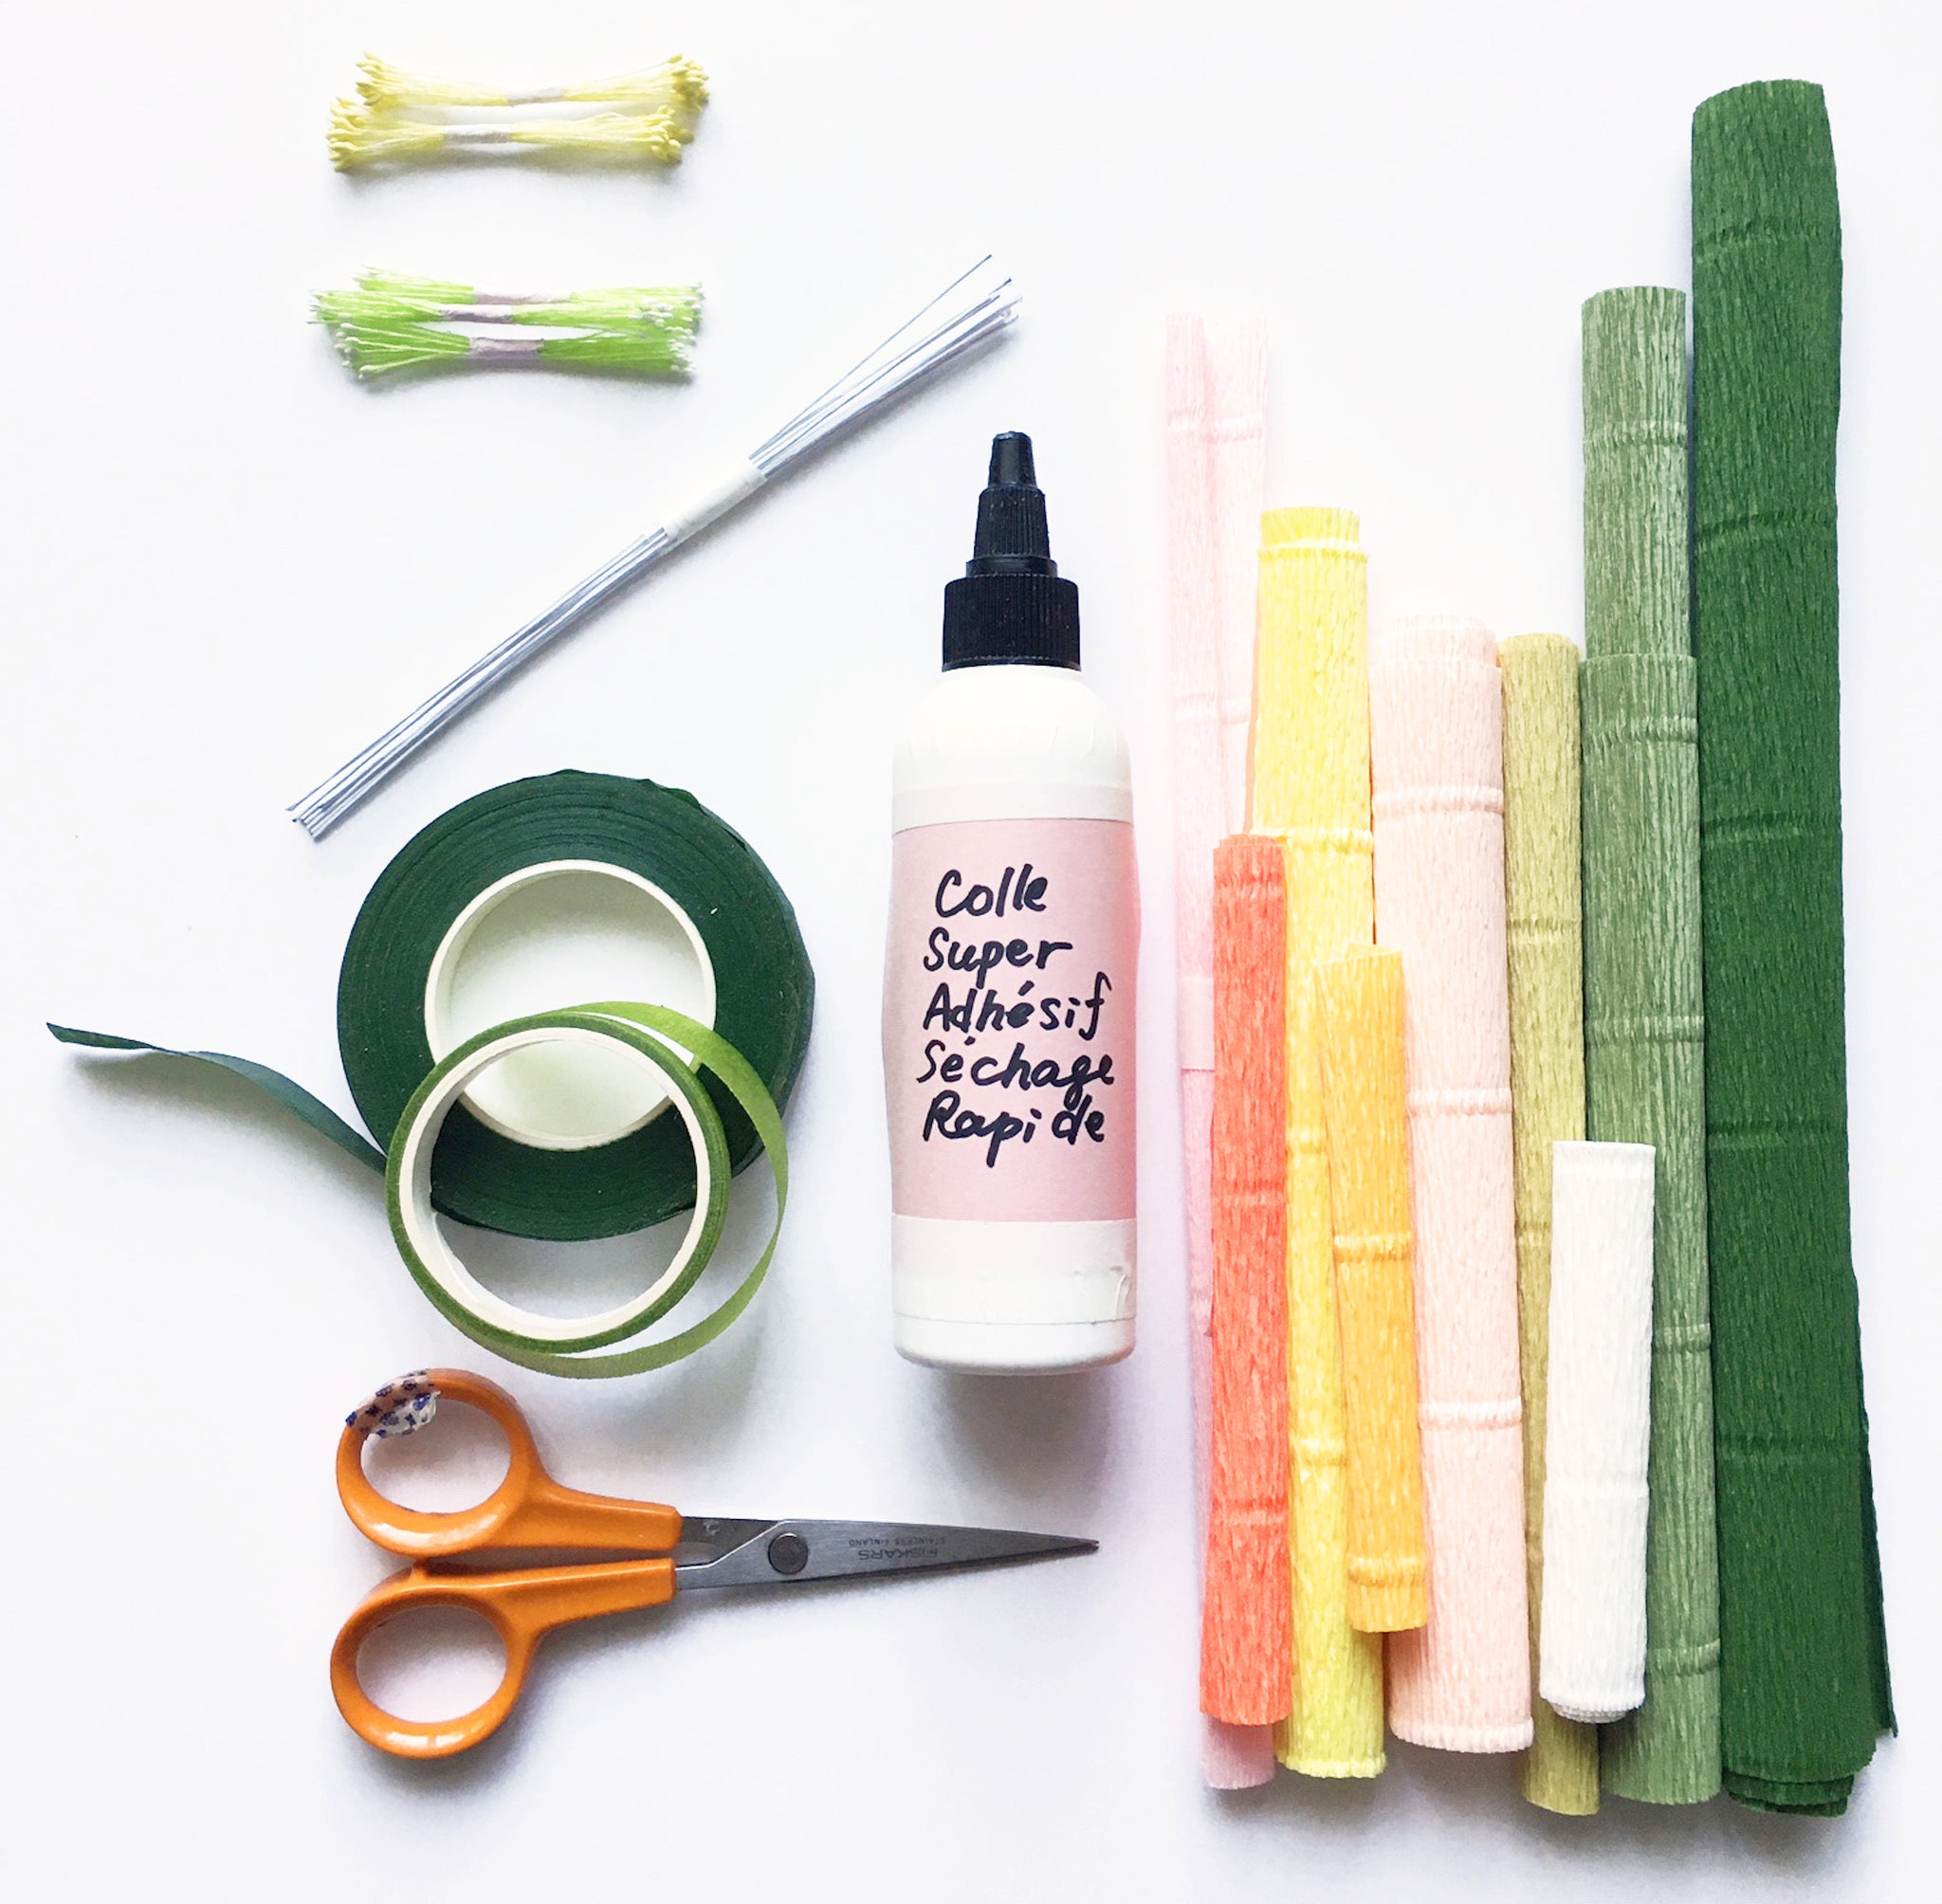 Colle
Super
Adhésif
Séchage
Rapide
FISKARS
STAINLESS FINLAND